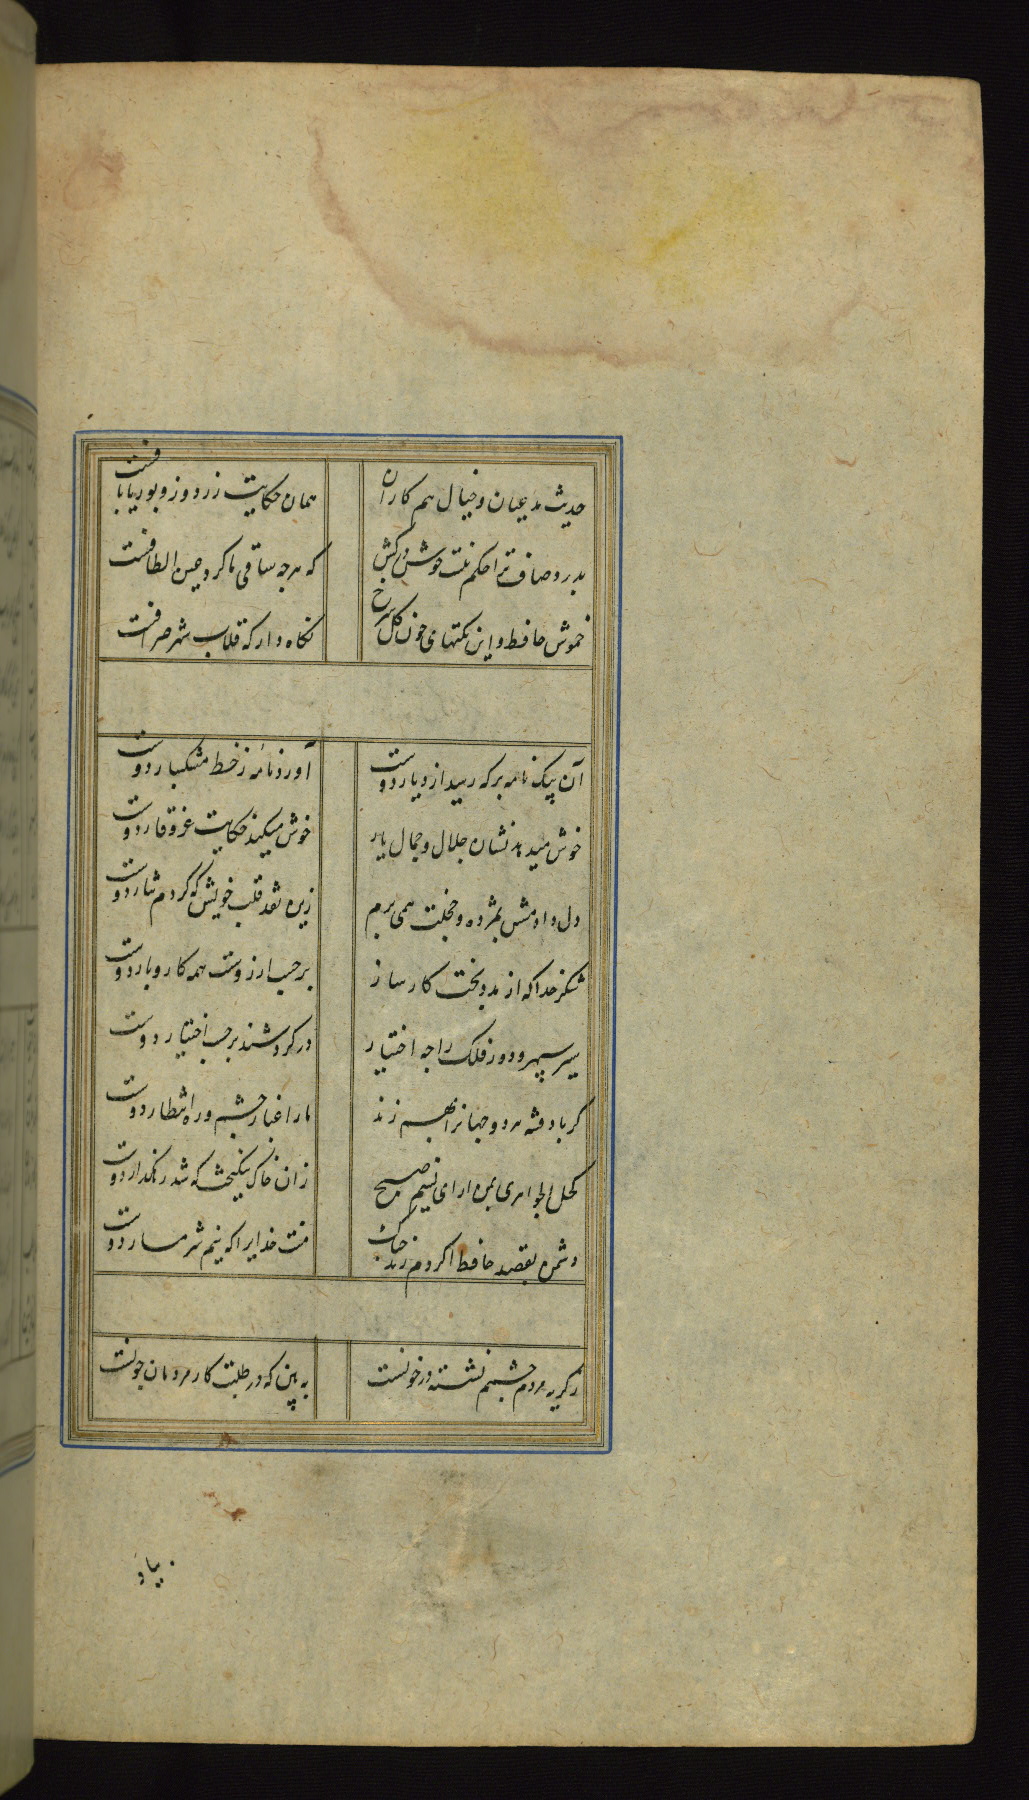 حدیث مدعیان و خیال هم کاران همان حکایت زردوز و بوریابافست
بدرد و صاف ترا حکم نیست خوش درکش که هرچه ساقی ما کرد عین الطافست
خموش حافظ و این نکتهای چون کل سرخ نکاه دار که قلاب شهر صرافست
آن پیک نامه بر که رسید از دیار دوست آورد نامه ز خط مشکبار دوست
خوش میدهد نشان جلال و جمال یار خوش میکند حکایت عز و وقار دوست
دل دادمش بمژده و خجلت همی برم زین نقد قلب خویش که کردم نثار دوست
شکر خدا که از مدد بخت کارساز برحسب ارزوست همه کار و بار دوست
سیر سپهر و دور فلک را چه اختیار در کردشند برحسب اختیار دوست
کر باد فتنه هر دو جهانرا بهم زند ما را غبار چشم و راه انتظار دوست
کحل الجواهری بمن ار ای نسیم صبح زان خاک نیکبخت که شد رهکذار دوست
دشمن بقصد حافظ اکر دم زند چه باک منت خدایرا که نیم شرمسار دوست
ز کریه مردم چشمم نشسته در خونست به بین که در طلبت کار مردمان چونست
بیاد